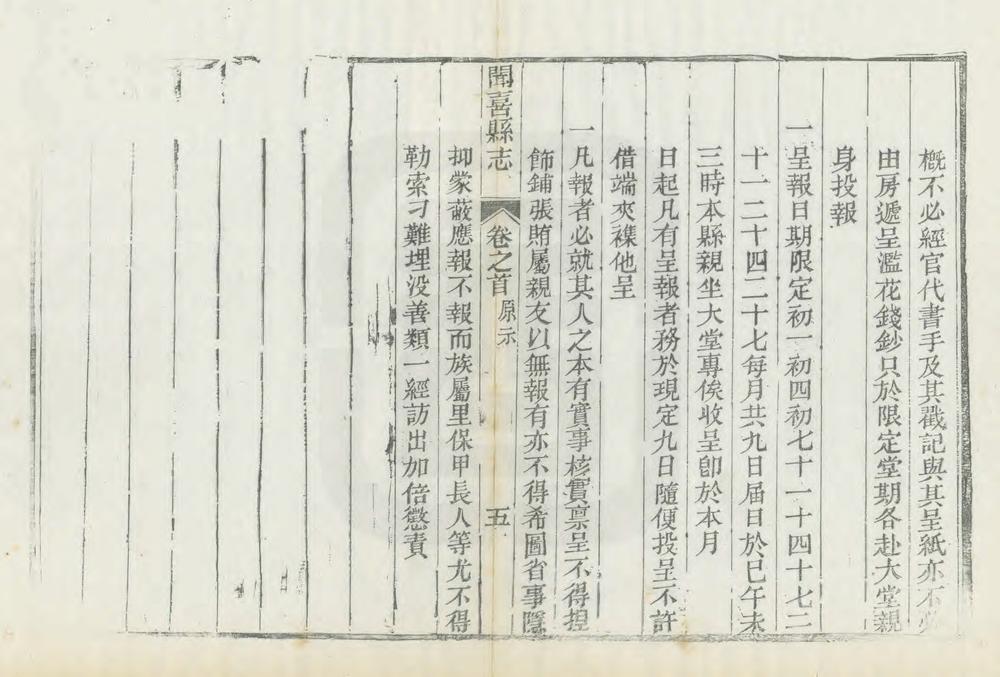 概不必經官代書手及其戳記與其呈紙亦不必
由房遞呈濫花錢鈔只於限定堂期各赴大堂親
身投報
一呈報日期限定初一初四初七十一十四十七二
十一二十四二十七每月共九日届日於巳午未
三時本縣親坐大堂專俟收呈卽於本月
日起凡有呈報者務於現定九日隨便投呈不許
借端夾襍他呈
一凡報者必就其人之本有實事核實禀呈不得揑
飾鋪張賄屬親友以無報有亦不得希圖省事隱
抑蒙蔽應報不報而族屬里保甲長人等尤不得
勒索刁難埋没善類一經訪出加倍懲責
聞喜縣志 卷之首 原示 五